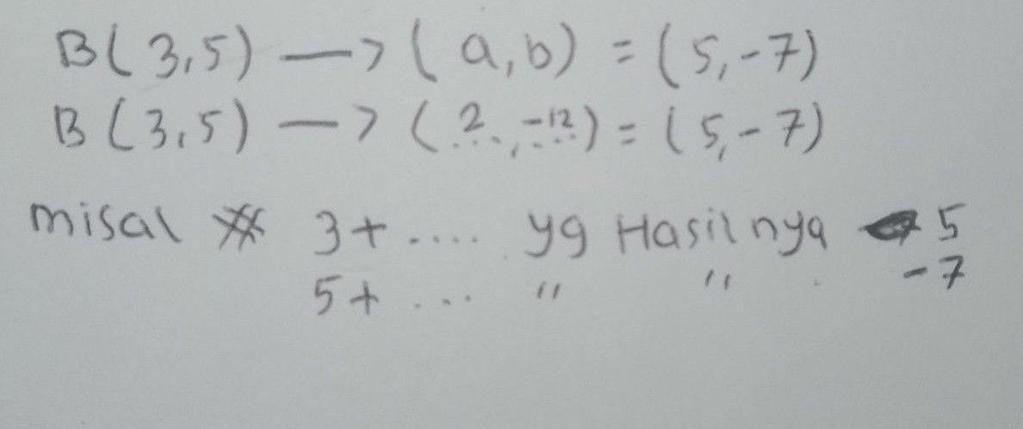 B(3,5) —> (a,b) = (5,-7)
B(3,5) —> (2..,-12..) = (5,-7)
misal 3+.... yg Hasilnya 5
5+.... " " -7